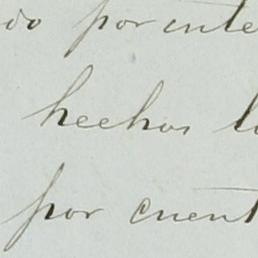 do por inte
hechos l
por cuent